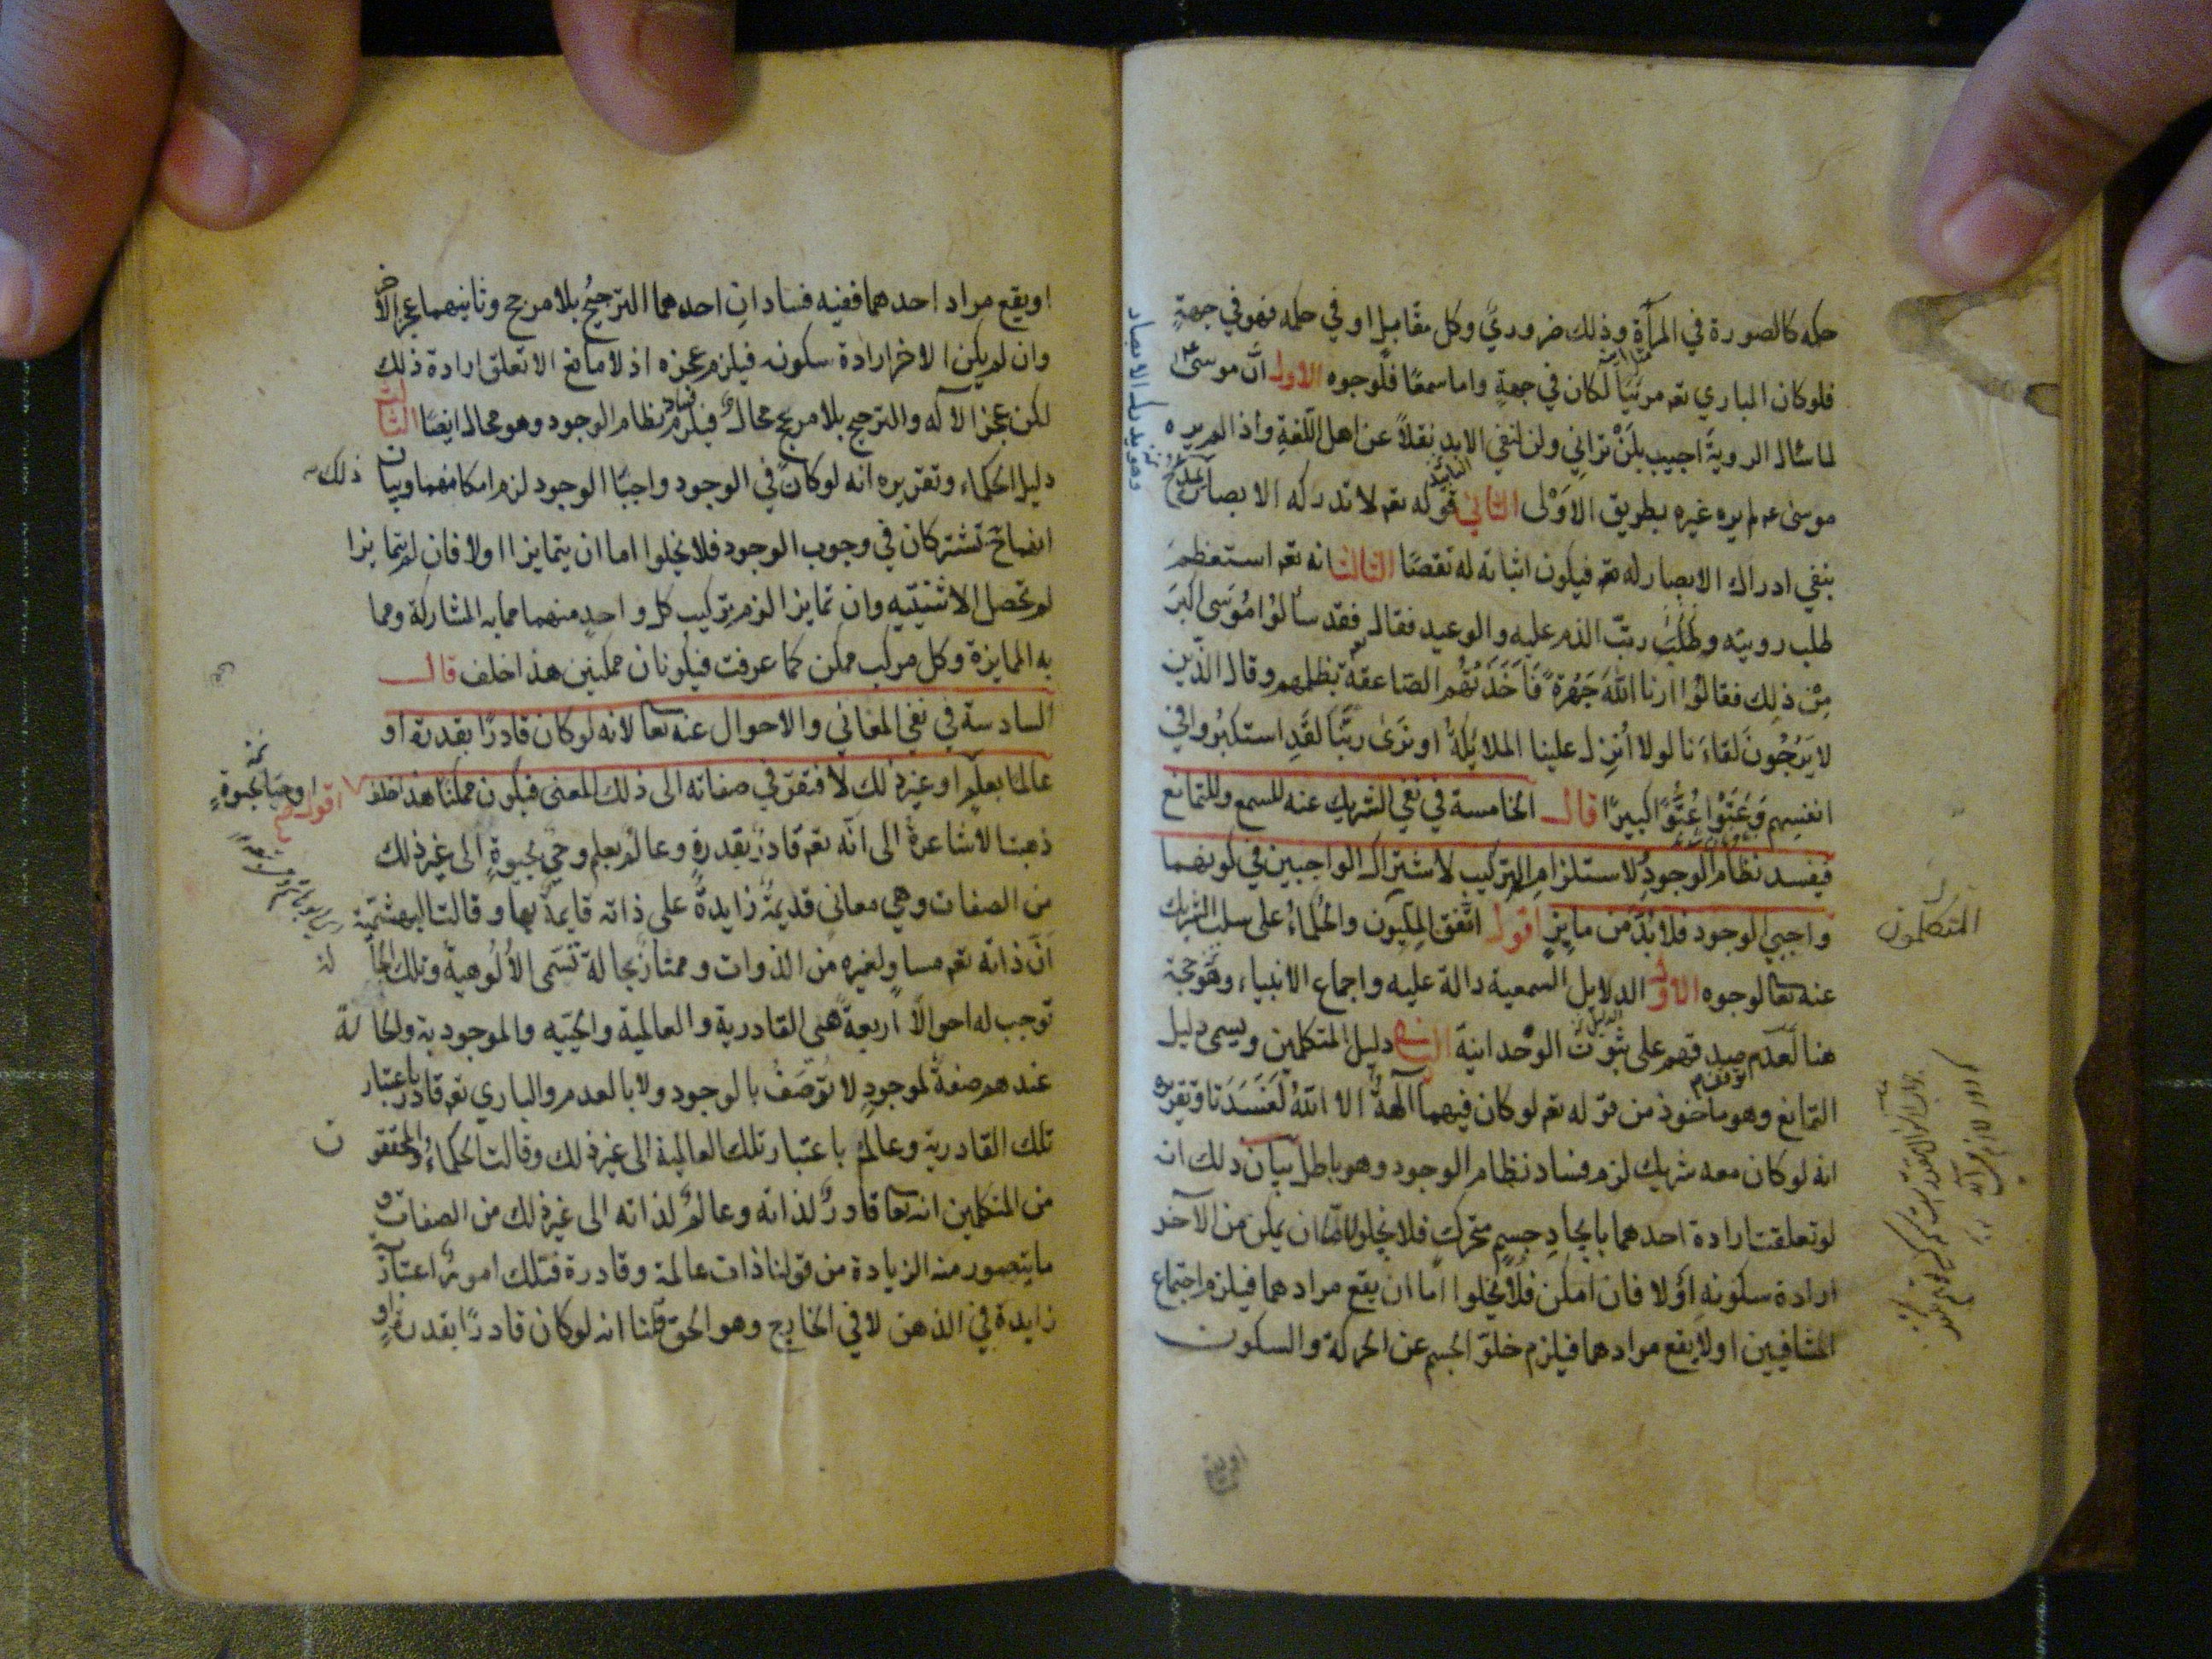 حكمه كالصورة في المرآة وذلك ضروري وكل مقابل او في حكمه فهو في جهةٍ
فلو كان الباري تعم مرئيا لكان في جهةٍ واما سمعًا فلوجوه الاول انّ موسىٰ
لما سئال الرويةَ اجيب بلَنْ تراني ولن لنفي الابد نقلاً عن اهل اللّغةِ واذا لم يره
موسىٰ عم لم يره غيره بطريق الاَوْلى الثاني قوله تعم لا تدركه الابصار تمدّح
بنفي ادراك الابصار له تعم فيكون اثباته له نقصًا الثالث انه تعم استعظم
طلب رويته ورتّب الذم عليه والوعيد فقال فقد سألوُا مُوسَى اكبرَ
مِنْ ذٰلِك فقالُوا ارنا اللّٰهَ جَهْرَةً فَاَخَذَتْهُم الصّاعقةُ بظلمهم وقال الذّين
لا يَرْجُونَ لقاءَنا لولا اُنْزِلَ علينا الملايكةُ او نَرَىٰ ربّنَا لقَدِ استكبرُوا في
انفسِهم وَعَتَوْا عُتُوًّا كبيرًا قال الخامسة في نفي الشريك عنه للسمع وللتمانع
فيفسد نظام الوجودِ ولاستلزامِ التركيب لاشتراك الواجبين في كونهما
واجبي الوجود فلا بُدَّ من مايزٍ اقول اتّفق المتكلمون والحُكماءُ على سلب الشريك
المتكلمون
عنه تعا لوجوه الاول الدلايل السمعية دالة عليه واجماع الانبياء وهو حجة
هنا لعدم صدقهم على ثبوت الوحدانية الثاني دليل المتكلمين ويسمى دليل
التمانع وهو ماخوذ من قوله تعم لو كان فيهما آلهةٌ الا اللهُ لَفَسَدَتا وتقريره
انه لو كان معه شريك لزم فساد نظام الوجود وهو باطل بيان ذلك انه
لو تعلقت ارادة احدهما بايجادِ جسمٍ متحرك فلا يخلو اما ان يمكن من الآخر
ارادة سكونه اوْ لا فان امكن فلا يخلوا امّا ان يقع مرادهما فيلزم اجتماع
المتنافيين او لا يقع مرادهما فيلزم خلوّ الجسم عن الحركة والسكون
او يقع
او يقع مراد احدهما ففيه فسادان احدهما الترجيحُ بلا مرجح وثانيهما عجز الآخر
وان لم يكن الاخر ارادة سكونه فيلزم عجزه اذ لا مانع الا تعلق ارادة ذلك
لكن عجز الاله والترجيح بلا مرجح محالٌ فيلزم فساد نظام الوجود وهو محال ايضًا الثالث
دليل الحكماء وتقريره انه لو كان في الوجود واجبًا الوجود لزم امكانهما وبيان ذلك
انهما ح تشتركان في وجوب الوجود فلا يخلوا اما ان يتمايزا او لا فان لم يتمايزا
لم تحصل الاثنينيه وان تمايزا لزم تركيب كل واحدٍ منهما مما به المشاركة ومما
به الممايزة وكل مركب ممكن كما عرفت فيكونان ممكنين هذا خلف قال
السادسة في نفي المعاني والاحوال عنه تعا لانه لو كان قادرًا بقدرة او
عالمًا بعلمٍ او غير ذلك لافتقر في صفاته الى ذلك المعنى فيكون ممكنًا هذا خلف اقول
او حيا بحيوةٍ
ذهبت الاشاعرة الى انّه تعم قادرٌ بقدرةٍ وعالمٌ بعلمٍ وحيٌ بحيوةٍ الى غير ذلك
من الصفات وهي معاني قديمةٌ زايدةٌ على ذاته قايمةٌ بها وقالت البهشميّة
انّ ذاته تعم مساوٍ لغيره من الذوات وممتازٌ بحالةٍ تسَمى الاُلُوهيةُ وتلك الحالة
توجب له احوالاً اربعةً هي القادرية والعالمية والحيّيه والموجودية والحالة
عندهم صفةٌ لموجودٍ لا توُصَفُ بالوجود ولا بالعدم والباري تعم قادر باعتبار
تلك القادرية وعالمٌ باعتبار تلك العالمية الى غير ذلك وقالت الحكماءُ والمحققون
من المتكلمين انه تعا قادرٌ لذاته وعالمٌ لذاته الى غير ذلك من الصفات و
ما يتصور منه الزيادة من قولنا ذات عالمة وقادرة فتلك امورٌ اعتباريّة
زايدة في الذهن لا في الخارج وهو الحق قلنا انه لو كان قادرًا بقدرة او